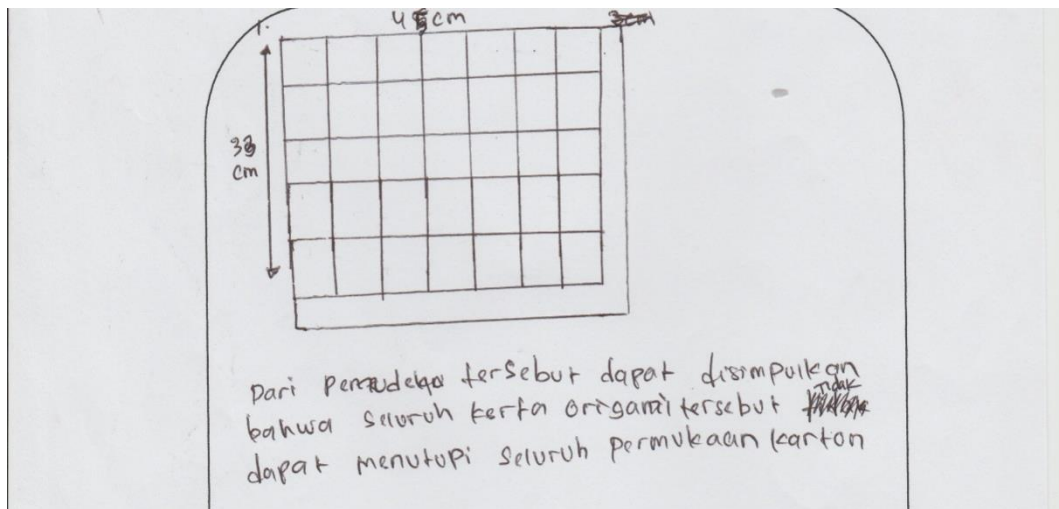 1.
45 cm
33
cm
Dari tersebut dapat disimpulkan
bahwa seluruh kerta origami tersebut tidak
dapat menutupi seluruh permukaan karton